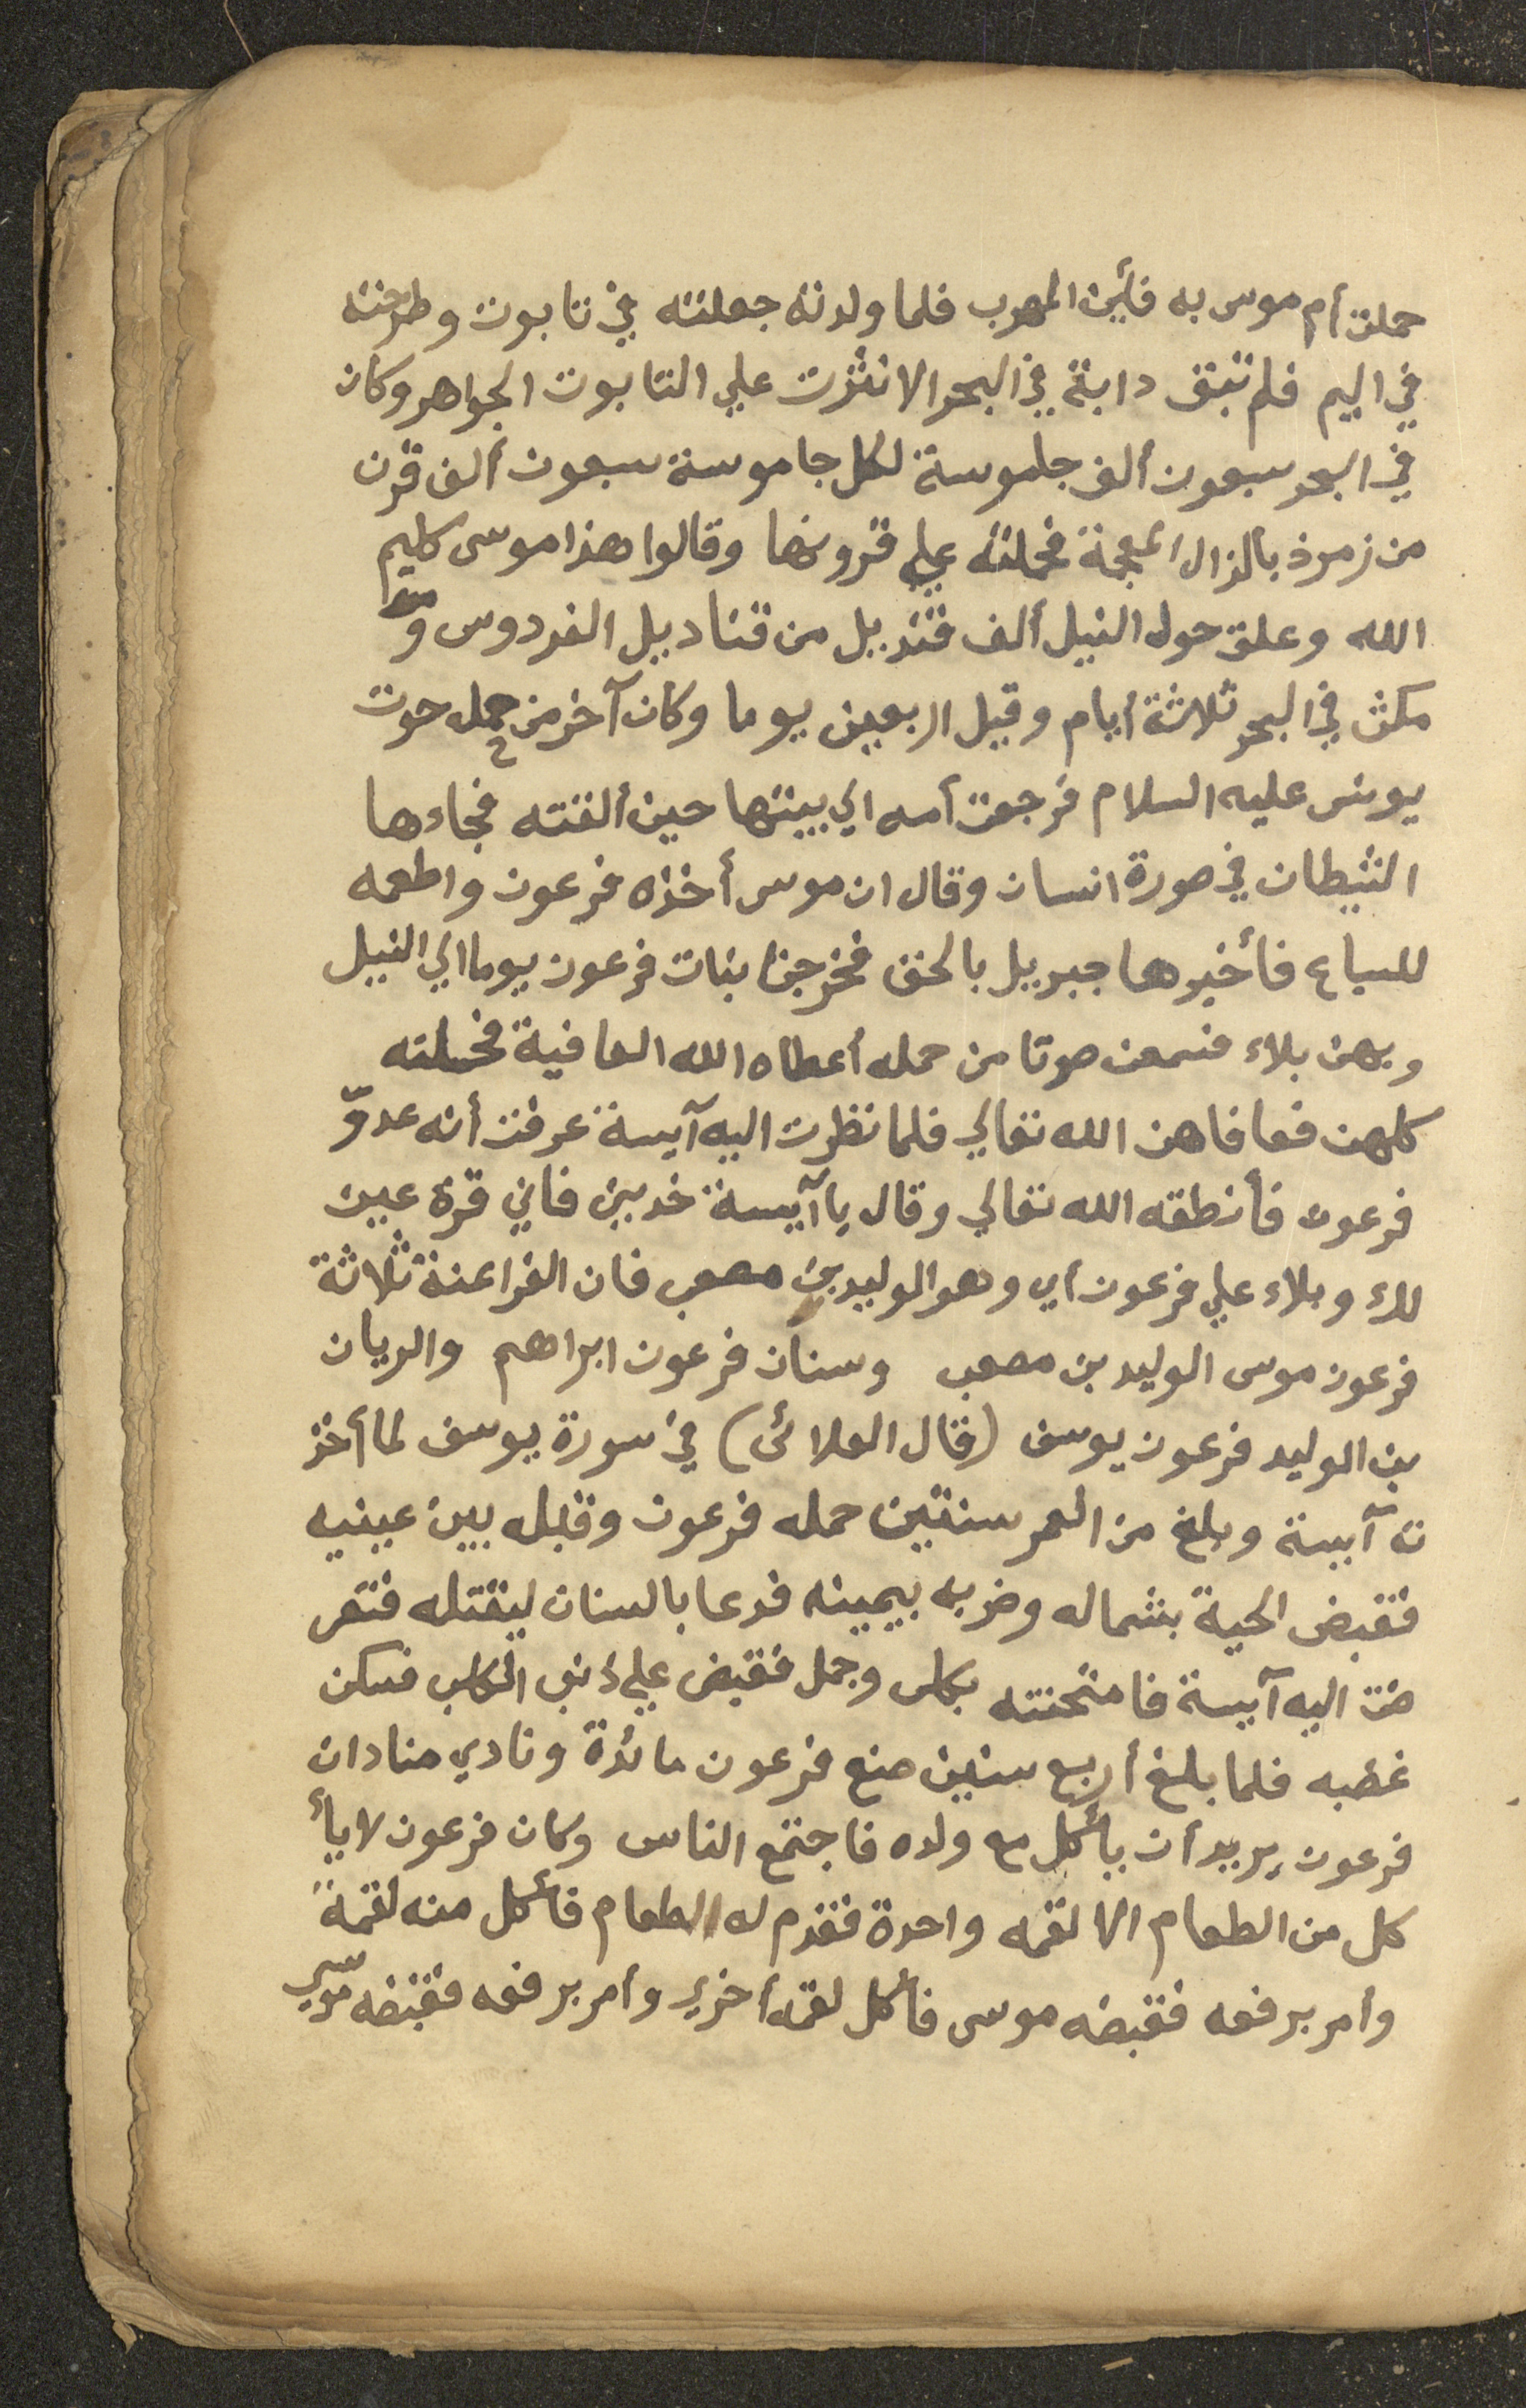 حملت أم موسى به فأين المهرب فلما ولدته جعلته في تابوت وطرحته
في اليم فلم تبق دابة في البحر الا نثرت علي التابوت الجواهر وكان
في البحر سبعون ألف جاموسة لكل جاموسة سبعون ألف قرن
من زمرذ بالذال المعجمة فحملته علي قرونها وقالوا هذا موسى كليم
الله وعلق حول النيل ألف قنديل من قناديل الفردوس و
مكث في البحر ثلاثة أيام وقيل اربعين يوما وكان آخر من حمله حوت
يونس عليه السلام فرجعت أمه الي بيتها حين ألقته فجاءها
الشيطان في صورة انسان وقال ان موسى أخذه فرعون واطعمه
للسباع فأخبرها جبريل بالحق فخرجن بنات فرعون يوما الي النيل
وبهن بلاء فسمعن صوتا من حمله أعطاه الله العافية فحملته
كلهن فعافاهن الله تعالي فلما نظرت اليه آيسة عرفت أنه عدوّ
فرعون فأنطقه الله تعالي وقال يا آيسة خديني فاني قرة عين
لك وبلاء علي فرعون أي وهو الوليد بن مصعب فان الفراعنة ثلاثة
فرعون موسى الوليد بن مصعب وسنان فرعون ابراهم والريان
بن الوليد فرعون يوسف (قال العلائى) في سورة يوسف لما أخذ
ته آيسة وبلغ من العمر سنتين حمله فرعون وقبله بين عينيه
فقبض الحية بشماله وضربه بيمينه فدعا بالسنان ليقتله فتعر
ضت اليه آيسة فامتحنته بكلب وجمل فقبض علي ذنب الكلب فسكن
غضبه فلما بلغ أربع سنين صنع فرعون مائدة ونادي مناد ان
فرعون يريد أن يأكل مع ولده فاجتمع الناس وكان فرعون لا يأ
كل من الطعام الا لقمه واحدة فقدم له الطعام فأكل منه لقمة
وأمر برفعه فقبضه موسى فأكل لقمة أخري وأمر برفعه فقبضه موسي